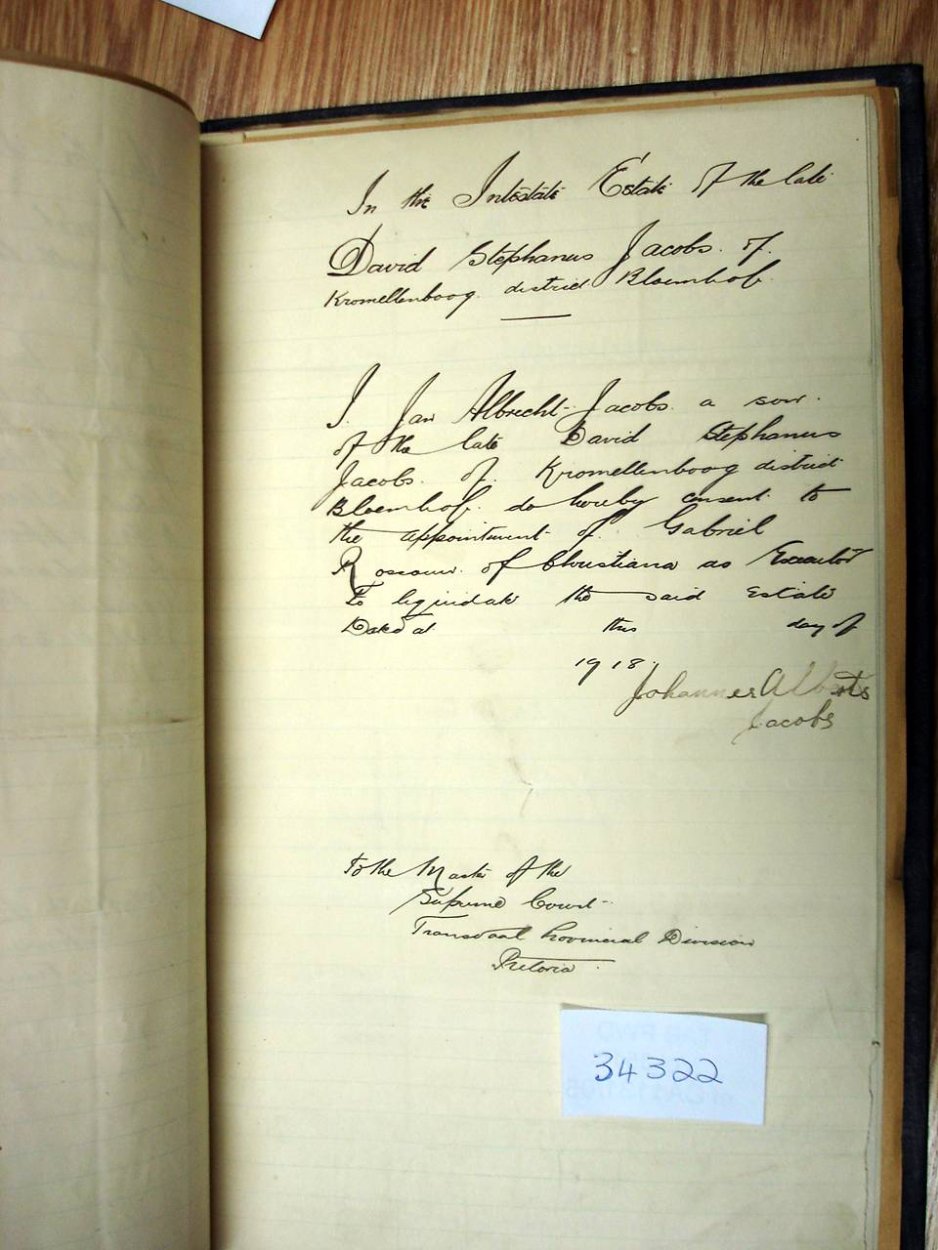 In the Intestate Estate of the late
David Stephanus Jacobs. of.
Kromellenboog district Bloemhof.
I. Jan Albrecht Jacobs a son.
of the late David Stephanus
Jacobs. of. Kromellenboog district
Bloemhof. do hereby consent to
the appointment of. Gabriel
of Christiana as Executor
To liquidate the said Estate
Dated at this day of
1918.
Johannes Alberts
Jacobs
To the Master of the
Supreme Court
Transvaal Provincial Division
Pretoria
34322